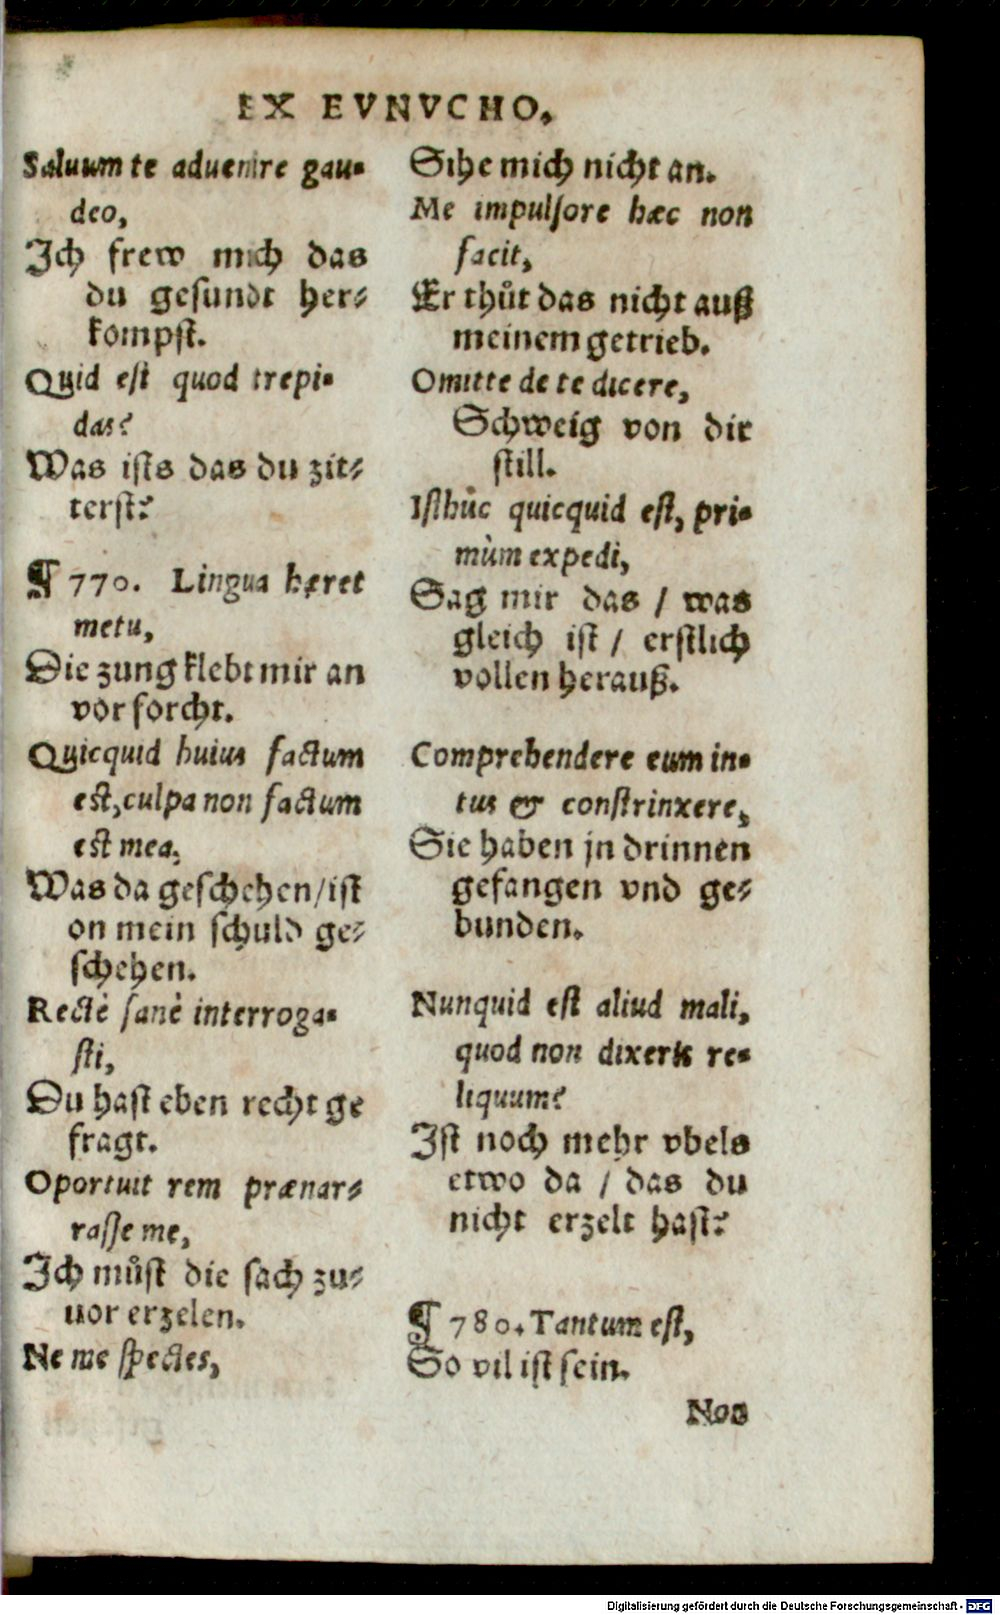 EX EVNVCHO.
Saluum te aduenire gau-
deo,
Ich frew mich das
du gesundt her-
kompst.
Quid est quod trepi-
das?
Was ists das du zit-
terst?
¶ 770. Lingua hæret
metu,
Die zung klebt mir an
vor forcht.
Quicquid huius factum
est, culpa non factum
est mea.
Was da geschehen/ist
on mein schuld ge-
schehen.
Rectè sanè interroga-
sti,
Du hast eben recht ge
fragt.
Oportuit rem prænar-
rasse me,
Ich můst die sach zu-
uor erzelen.
Ne me spectes,
Sihe mich nicht an.
Me impulsore hæc non
facit,
Er thůt das nicht auß
meinem getrieb.
Omitte de te dicere,
Schweig von dir
still.
Isthůc quicquid est, pri-
mùm expedi,
Sag mir das / was
gleich ist / erstlich
vollen herauß.
Comprehendere eum in-
tus & constrinxere,
Sie haben jn drinnen
gefangen vnd ge-
bunden.
Nunquid est aliud mali,
quod non dixeris re-
liquum?
Ist noch mehr vbels
etwo da / das du
nicht erzelt hast?
¶ 780. Tantum est,
So vil ist sein.
Nos
Digitalisierung gefördert durch die Deutsche Forschungsgemeinschaft - DFG